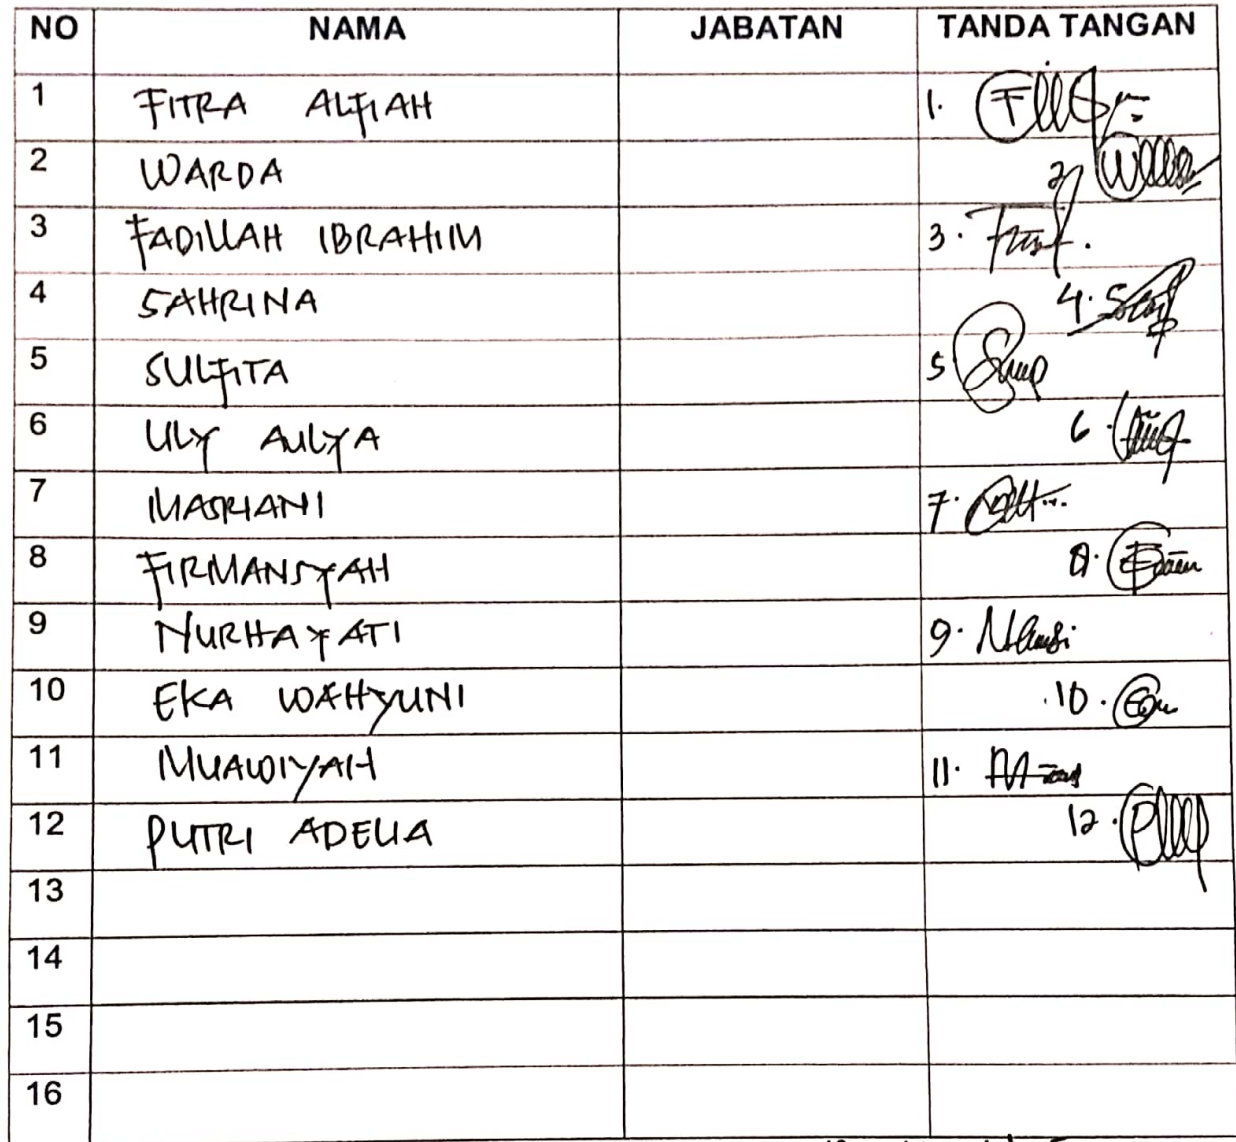 NO NAMA JABATAN TANDA TANGAN
1 FITRA ALFIAH 1.
2 WARDA 2
3 FADILLAH IBRAHIM 3.
4 SAHRINA 4.
5 SULFITA 5
6 ULY AULYA 6.
7 MASRIANI 7.
8 FIRMANSYAH 8.
9 NURHAYATI 9.
10 EKA WAHYUNI 10.
11 MUAWIYAH 11.
12 PUTRI ADELIA 12.
13
14
15
16